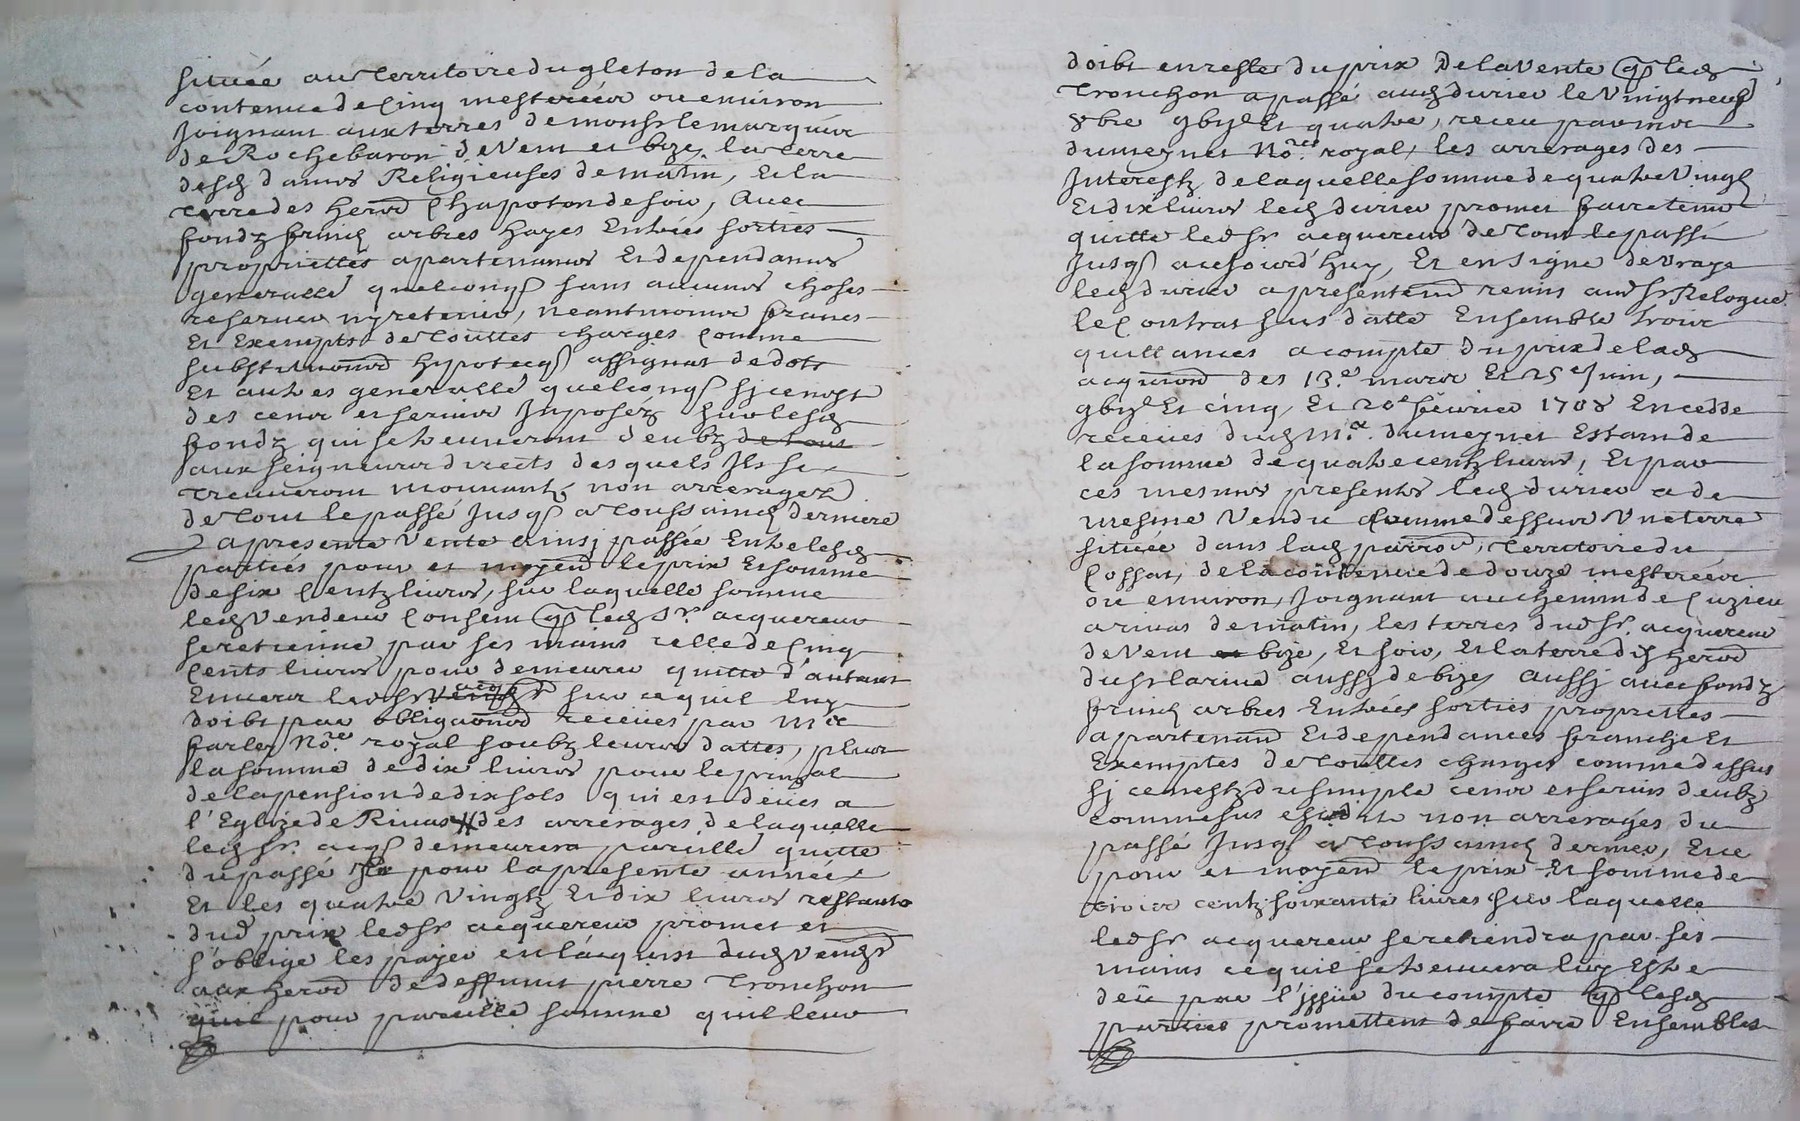 située au Territoire du gleton de la
contenue de Cinq mesterées ou environ
Joignant aux terres de monsr le marquis
de Rochebaron de Vent et bize, la terre
desd dames Religieuses de matin, Et la
terre des hers Chapoton de soir, Avec
fondz fruicts arbres hayes Entrées sorties
propriettes apartenances Et dependances
generalle quelconqs sans aucunes choses
reserver ny retenir, neantmoins francs
Et Exempts de touttes charges Comme
substitutions hypotecqs assignat de dots
Et autres generalle quelconqs sj ce nest
des cens et servis Jmposés sur lesd
fondz qui se treuveront deubz de tous
aux seigneurs directs desquels Jls se
treuveront mouvants, non arreragez
de tout le passé Jusqs a toussainct derniere
La presente Vente ainsj passée Entre lesd
parties pour et moyen le prix Et somme
de six Centz livres, sur laquelle somme
led Vendeur Consent que led sr. acquereur
se retienne par ses mains celle de Cinq
Cents livres pour demeurer quitte d'autant
Envers led sr acqr sur ce quil luy
doibt par obligations receües par Me
farley Nore. royal soubz leurs dattes, plus
la somme de dix livres pour le prinpal
de la pension de dix sols qui est deües a
l'Eglize de Rivas des arrerages de laquelle
led sr. acqr demeurera pareille quitte
du passé pour la presente année
Et les quatre Vingtz Et dix livres restants
dud prix led sr acquereur promet et
s'oblige les payer en l'acquist dud vendr
aux hers de deffunt pierre Tronchon
pour pareille somme quil leur
doibt en reste du prix de la Vente que led
Tronchon a passé aud durieu le Vingt neuf
8bre gbijc Et quatre, receu par me
dumeynet Nore. royal, les arrerages des
Jnterestz de laquelle somme de quatre Vingt
Et dix livres led durieu promet faire tenir
quitte led sr acquereur de tout le passé
Jusqs aujourd'huy, Et en signe de vraye
led durieu a presentement remis aud sr Relogue
le Contrat sus datte Ensemble trois
quittances a compte du prix de lad
acquion des 13.e mars Et 25e Juin,
gbijc Et cinq, Et 20e février 1708 En cedde
receües dud m.e dumeynet Estant de
la somme de quatre centz livres, Et par
ces mesmes presentes led durieu a de
mesme Vendu Comme dessus Une terre
située dans lad parroe, Territoire du
Cossat, de la contenue de douze mesterées
ou environ, Joignant au chemin de Cuzieu
a rivas de matin, les terres dud sr. acquereur
de Vent bize, Et soir, Et la terre des hers
du sr larive aussj de bize, Aussj avec fondz
fruicts arbres Entrées sorties proprettes
apartenan Et dependances franche Et
Exemptes de touttes charges comme dessus
sj ce nest du simple cens et servis deubz
comme sus est dit non arrerages du
passé Jusqs a toussainct dernier, Et ce
pour et moyen le prix Et somme de
trois centz soixante livres sur laquelle
led sr acquereur se retiendra par ses
mains ce quil se treuvera luy Estre
deü par l'jssüe du compte que lesd
parties promettent de faire Ensembles